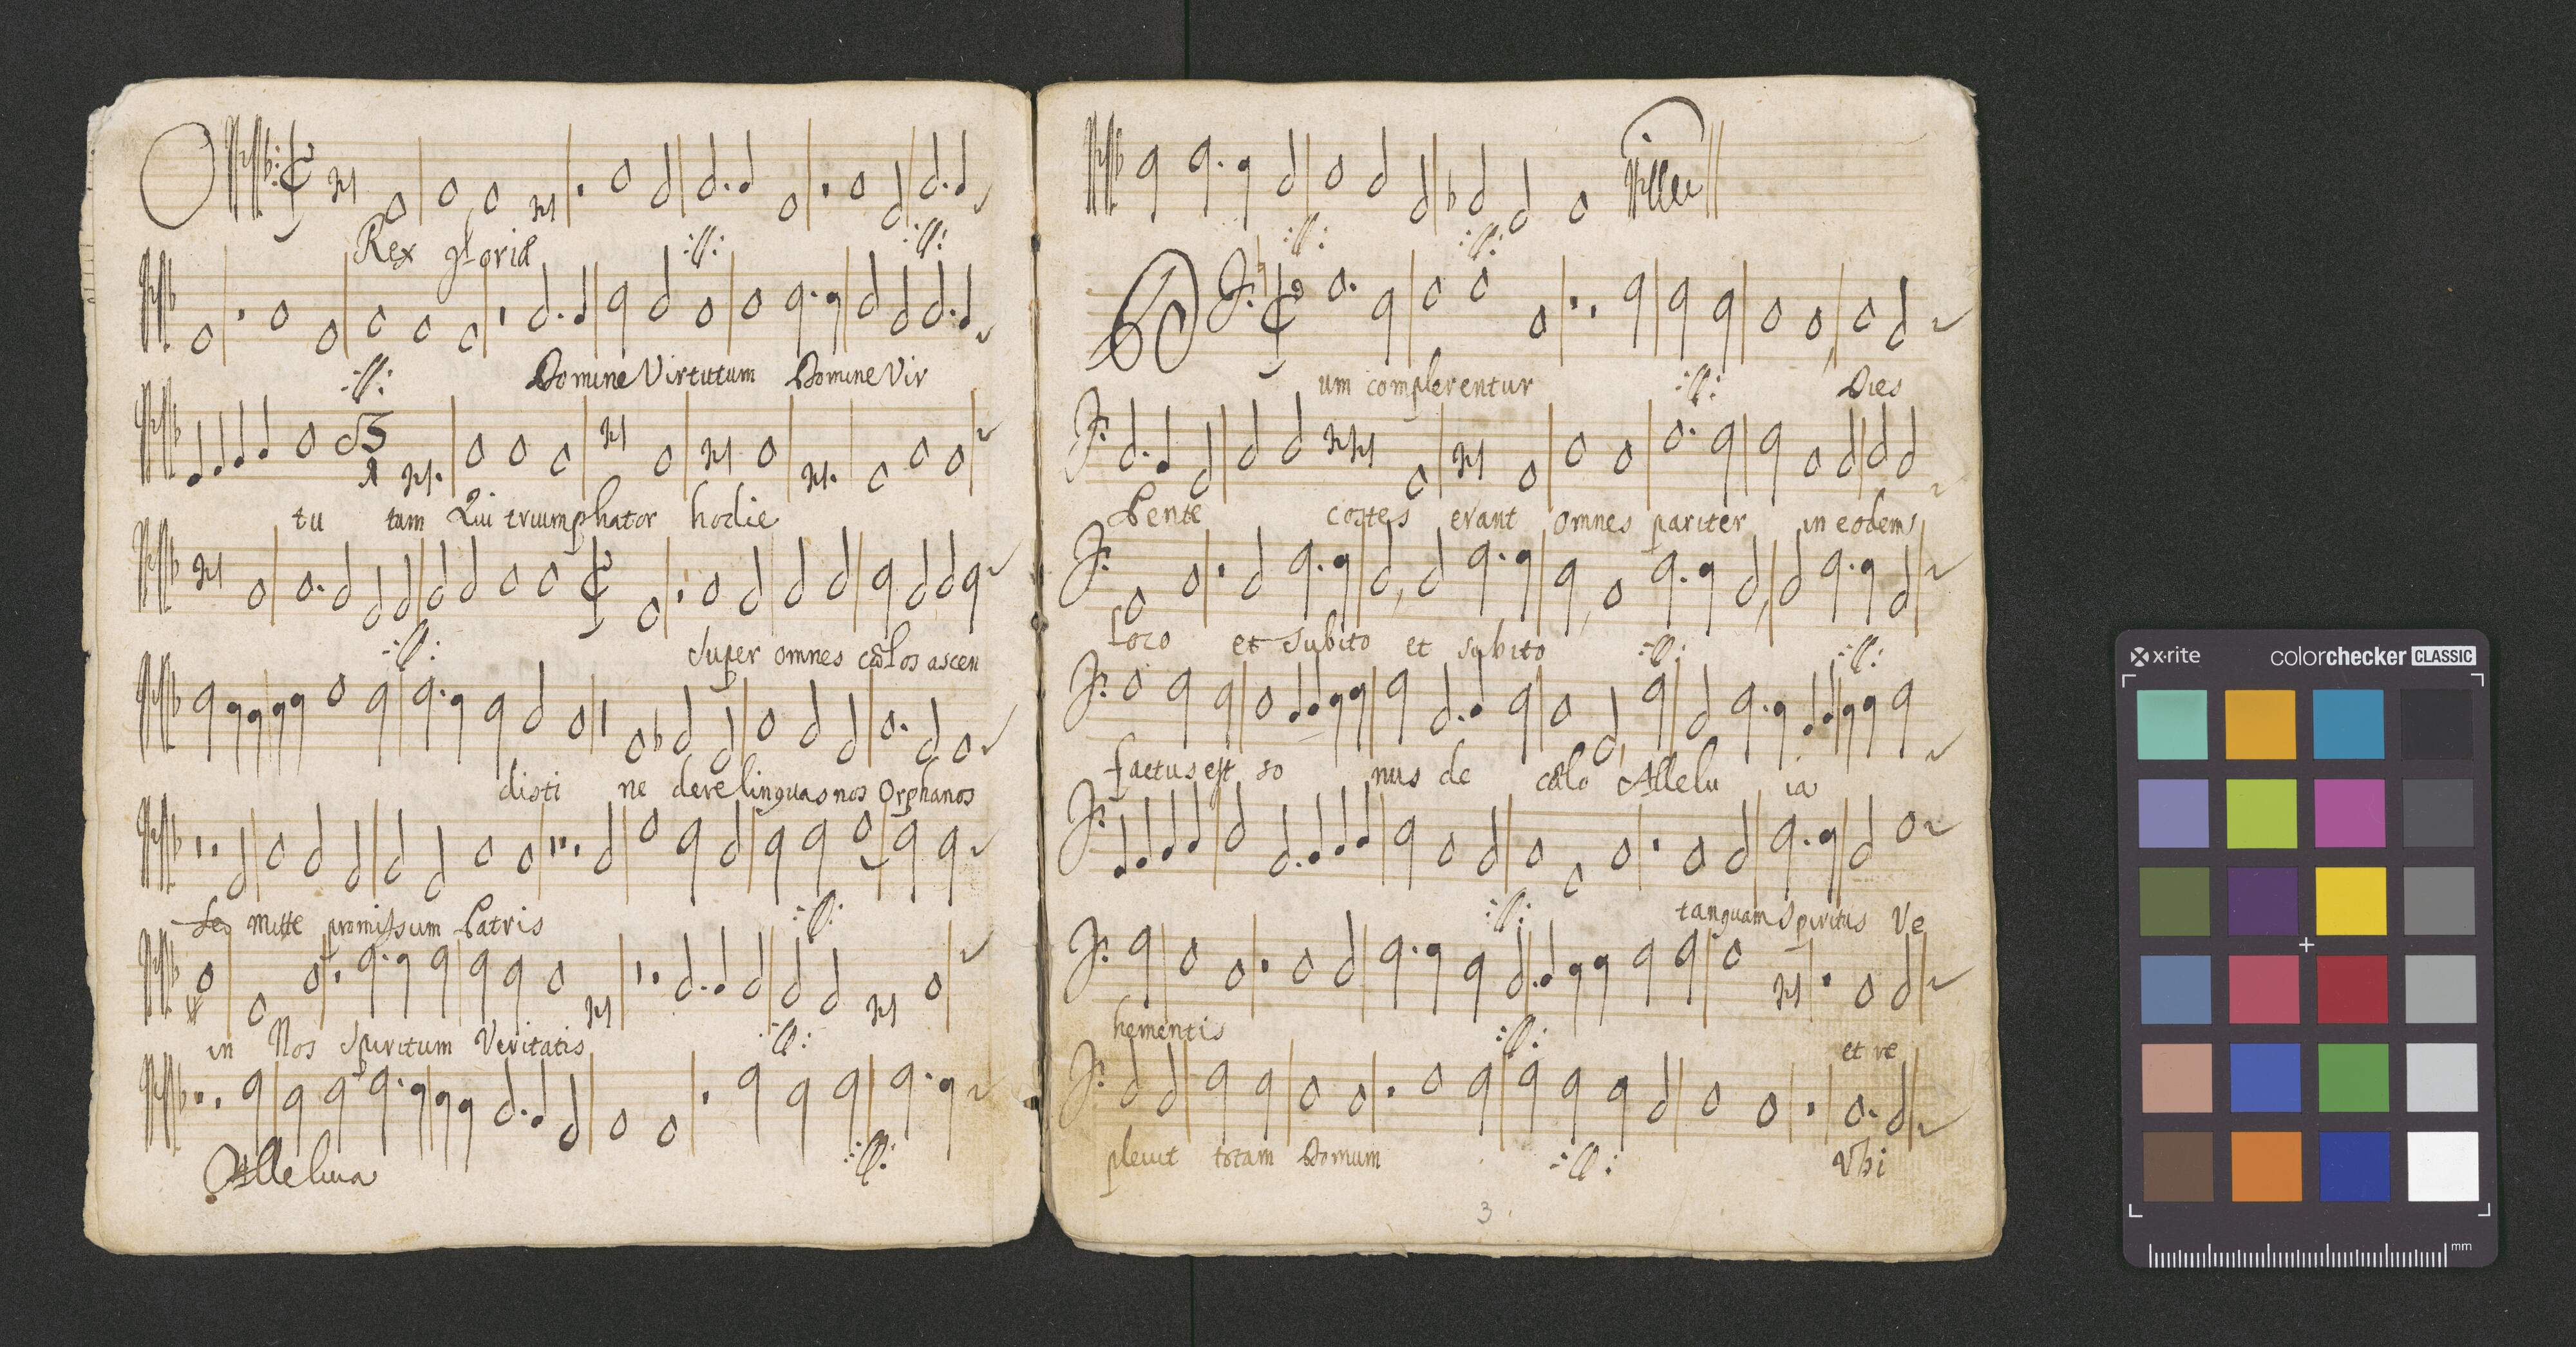 O
Rex gloriæ :ll: :ll:
:ll: Domine Virtutum Domine Vir
tu tum Qui triumphator hodie
:ll: super omnes cœlos ascen
disti ne derelinquas nos Orphanos
sed mitte promissum Patris :ll:
in Nos Spiritum Veritatis :ll:
Alleluia :ll:
:ll: :ll:
um complerentur :ll: Dies
Pente costes erant omnes pariter in eodem
loco et subito et subito :ll: :ll:
factus est so nus de cœlo Allelu ia
:ll: tanquam Spiritus Ve
hementis :ll: et re
pleuit totam Domum :ll: Vbi
3
x·rite colorchecker CLASSIC
mm